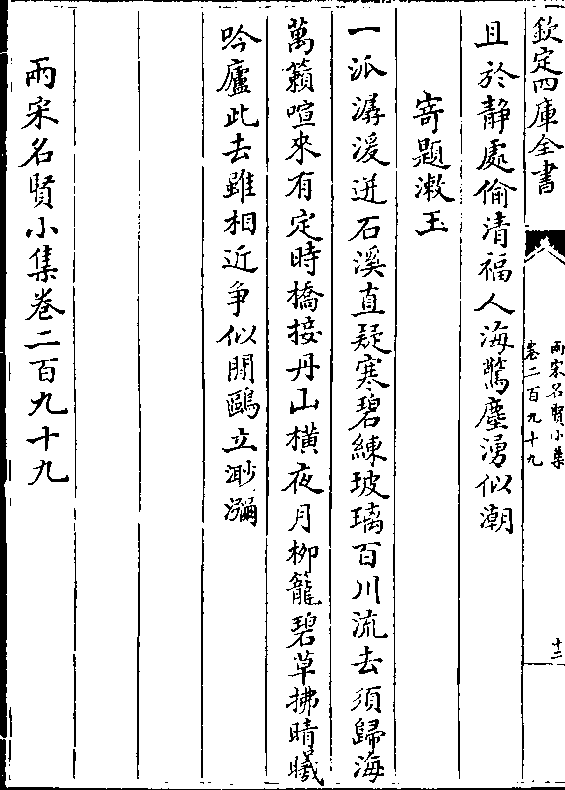 欽定四庫全書
兩宋名賢小集
卷二百九十九
十二
且於静處偷清福人海驚塵湧似潮
寄題漱玉
一派潺湲迸石溪直疑寒碧練玻璃百川流去須歸海
萬籟喧來有定時橋接丹山橫夜月柳籠碧草拂晴曦
吟廬此去雖相近争似閒鷗立渺瀰
兩宋名賢小集卷二百九十九